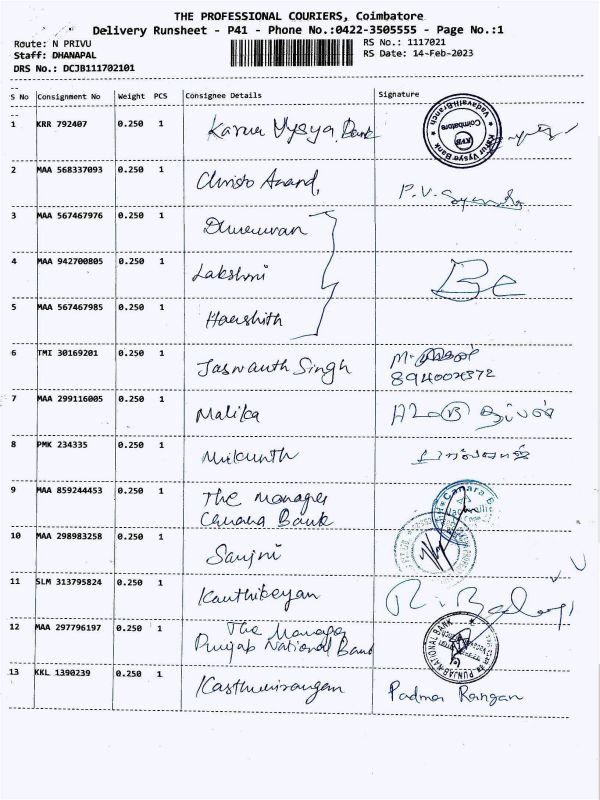 THE PROFESSIONAL COURIERS, Coimbatore
Delivery Runsheet - P41 - Phone No.:0422-3505555 - Page No.:1
Route: N PRIVU RS No.: 1117021
Staff: DHANAPAL RS Date: 14-Feb-2023
DRS No.: DCJB111702101
S No Consignment No Weight PCS Consignee Details Signature
1 KRR 792407 0.250 1 Karur Vysya Bank
Karur Vysya Bank Vadavalli Branch KVB Coimbatore
2 MAA 568337093 0.250 1 Christo Anand, P.V.
3 MAA 567467976 0.250 1
4 MAA 942700805 0.250 1 Lakshmi
5 MAA 567467985 0.250 1 Harshith
6 TMI 30169201 0.250 1 Jaswanth Singh
7 MAA 299116005 0.250 1 Malika
8 PMK 234335 0.250 1 Mukunth
9 MAA 859244453 0.250 1 The Manager
Canara Bank
10 MAA 298983258 0.250 1 Sanjni
11 SLM 313795824 0.250 1 Kauthikeyan
12 MAA 297796197 0.250 1 The Manager
Punjab National Bank
PUNJAB NATIONAL BANK
13 KKL 1390239 0.250 1 Kasthurirangan Padma Rangan